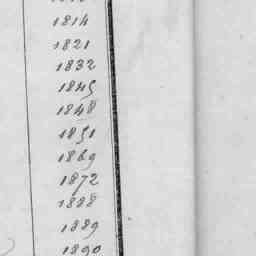 1814
1821
1832
1845
1848
1851
1869
1872
1888
1889
1890